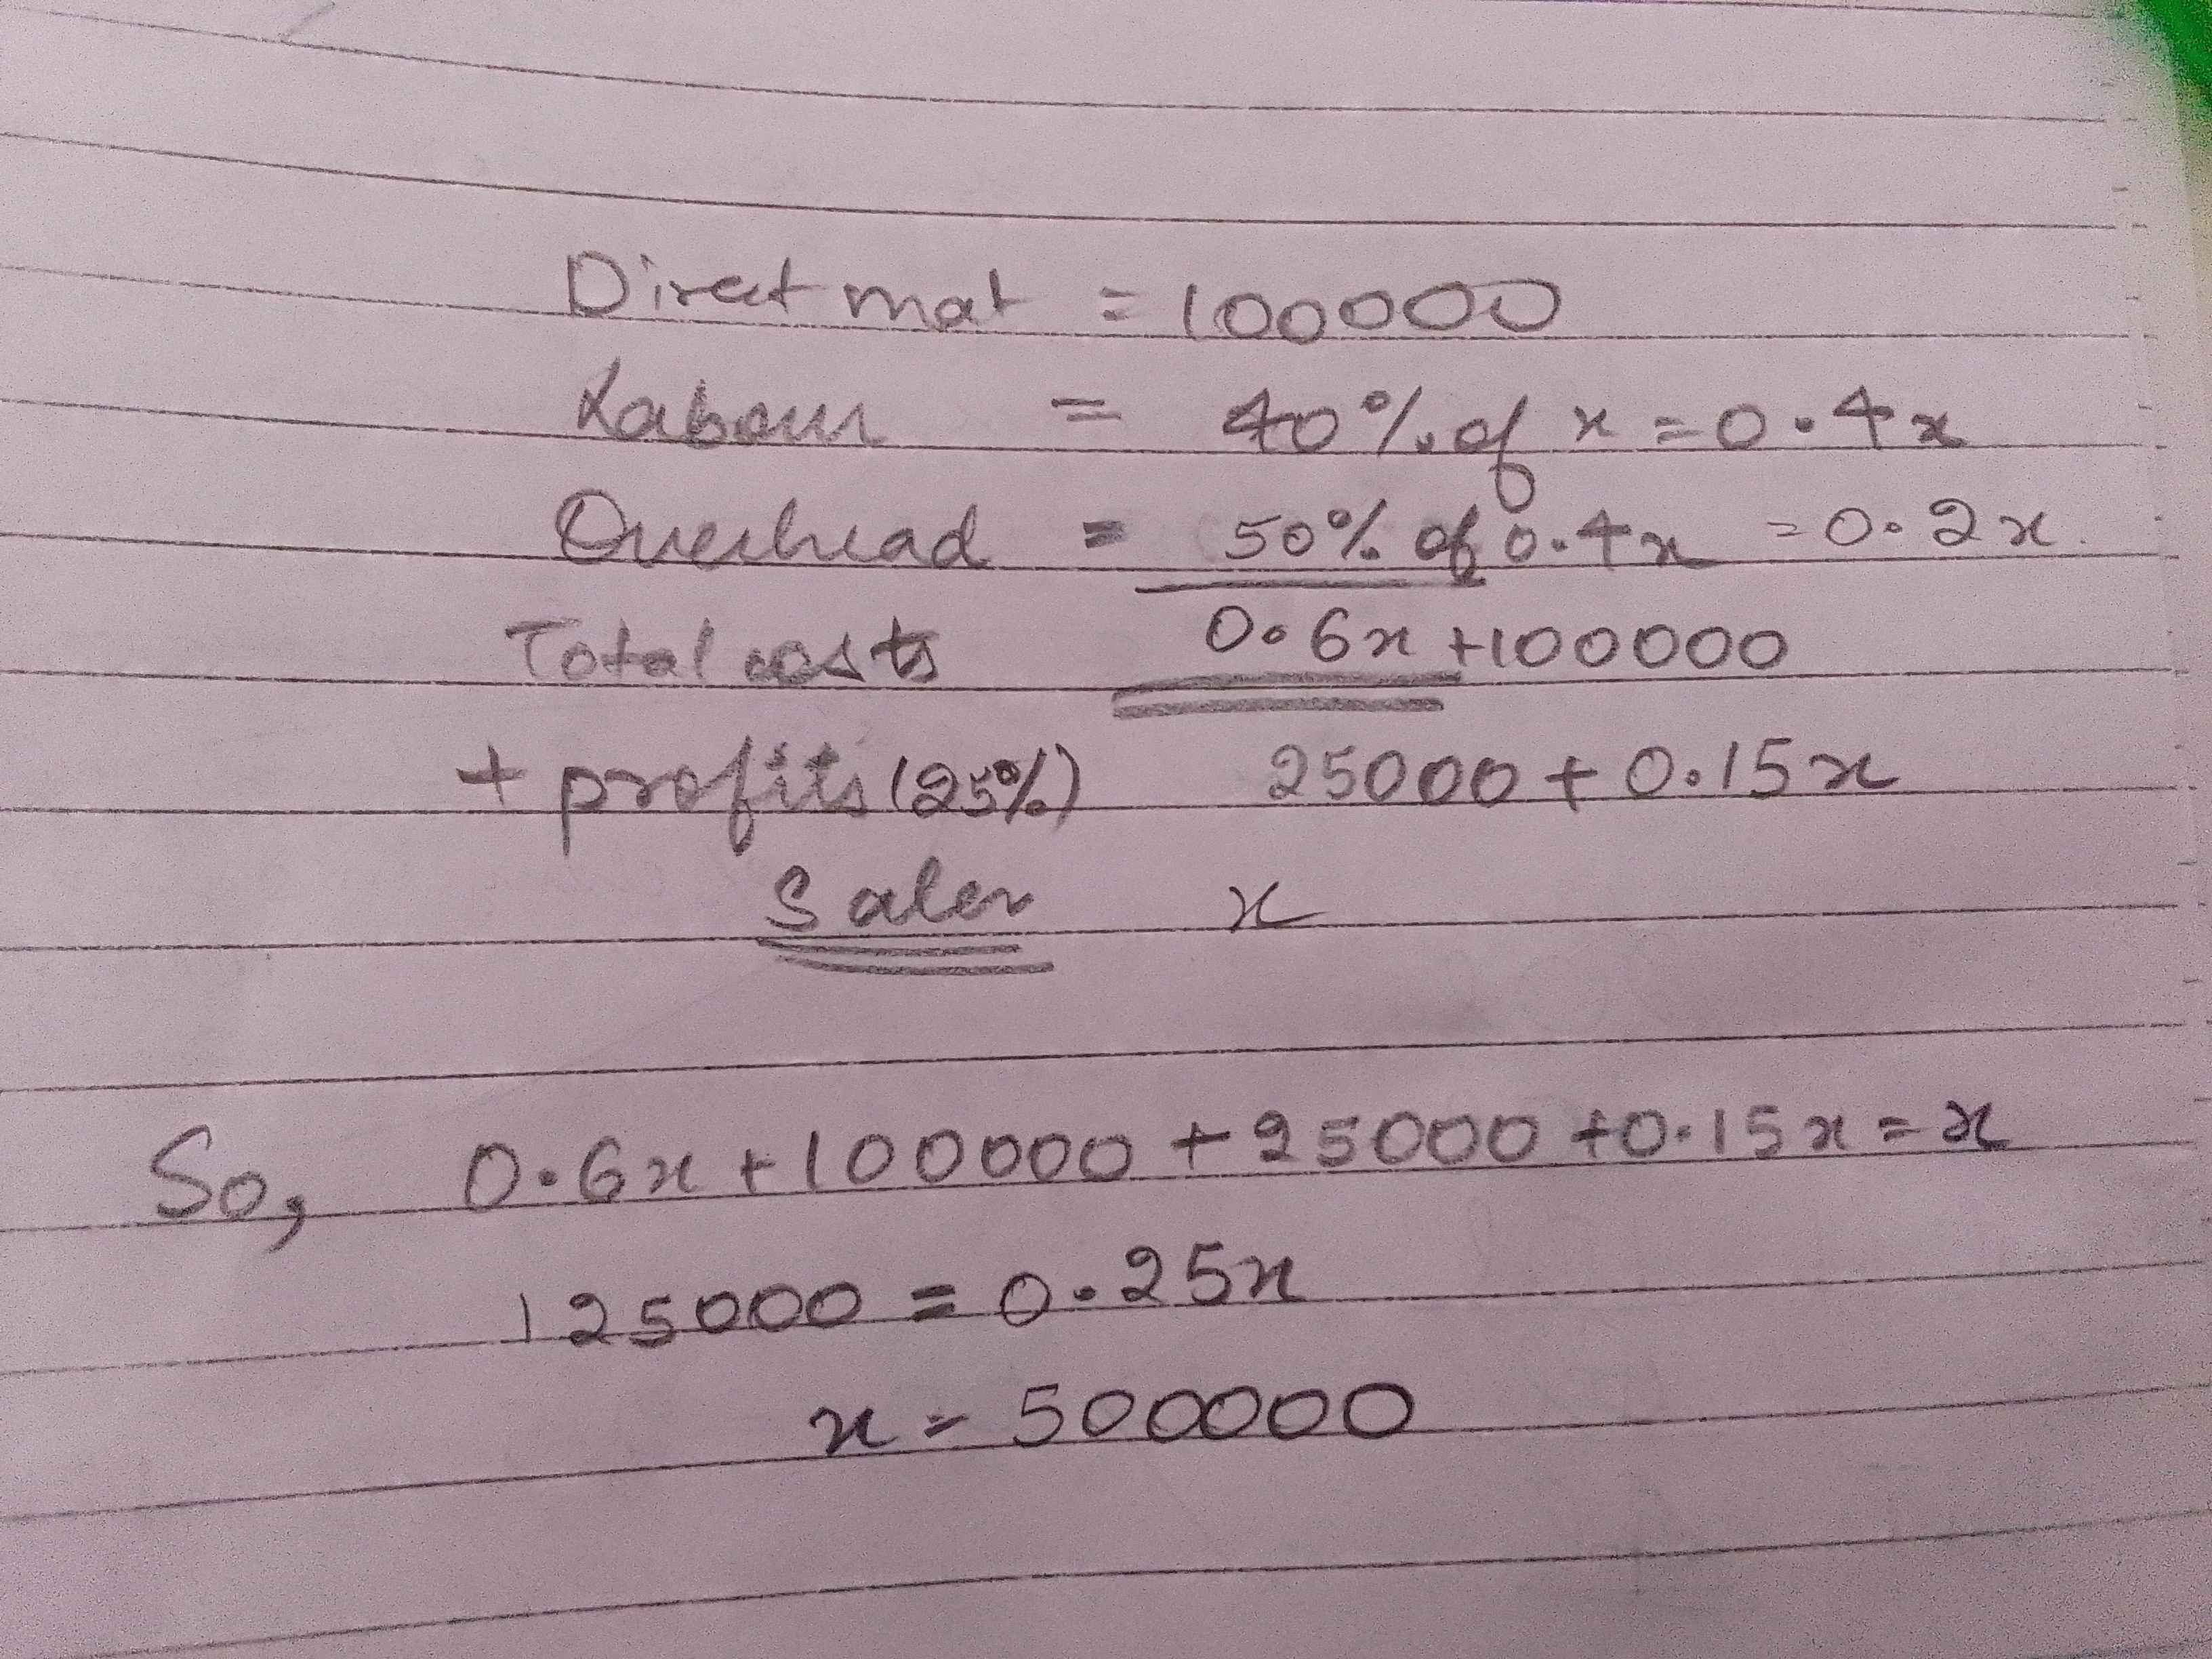 Direct mat = 100000
Labour = 40% of x = 0.4x
Overhead = 50% of 0.4x = 0.2x
Total costs 0.6x + 100000
+ profits (25%) 25000 + 0.15x
Sales x
So, 0.6x + 100000 + 25000 + 0.15x = x
125000 = 0.25x
x = 500000